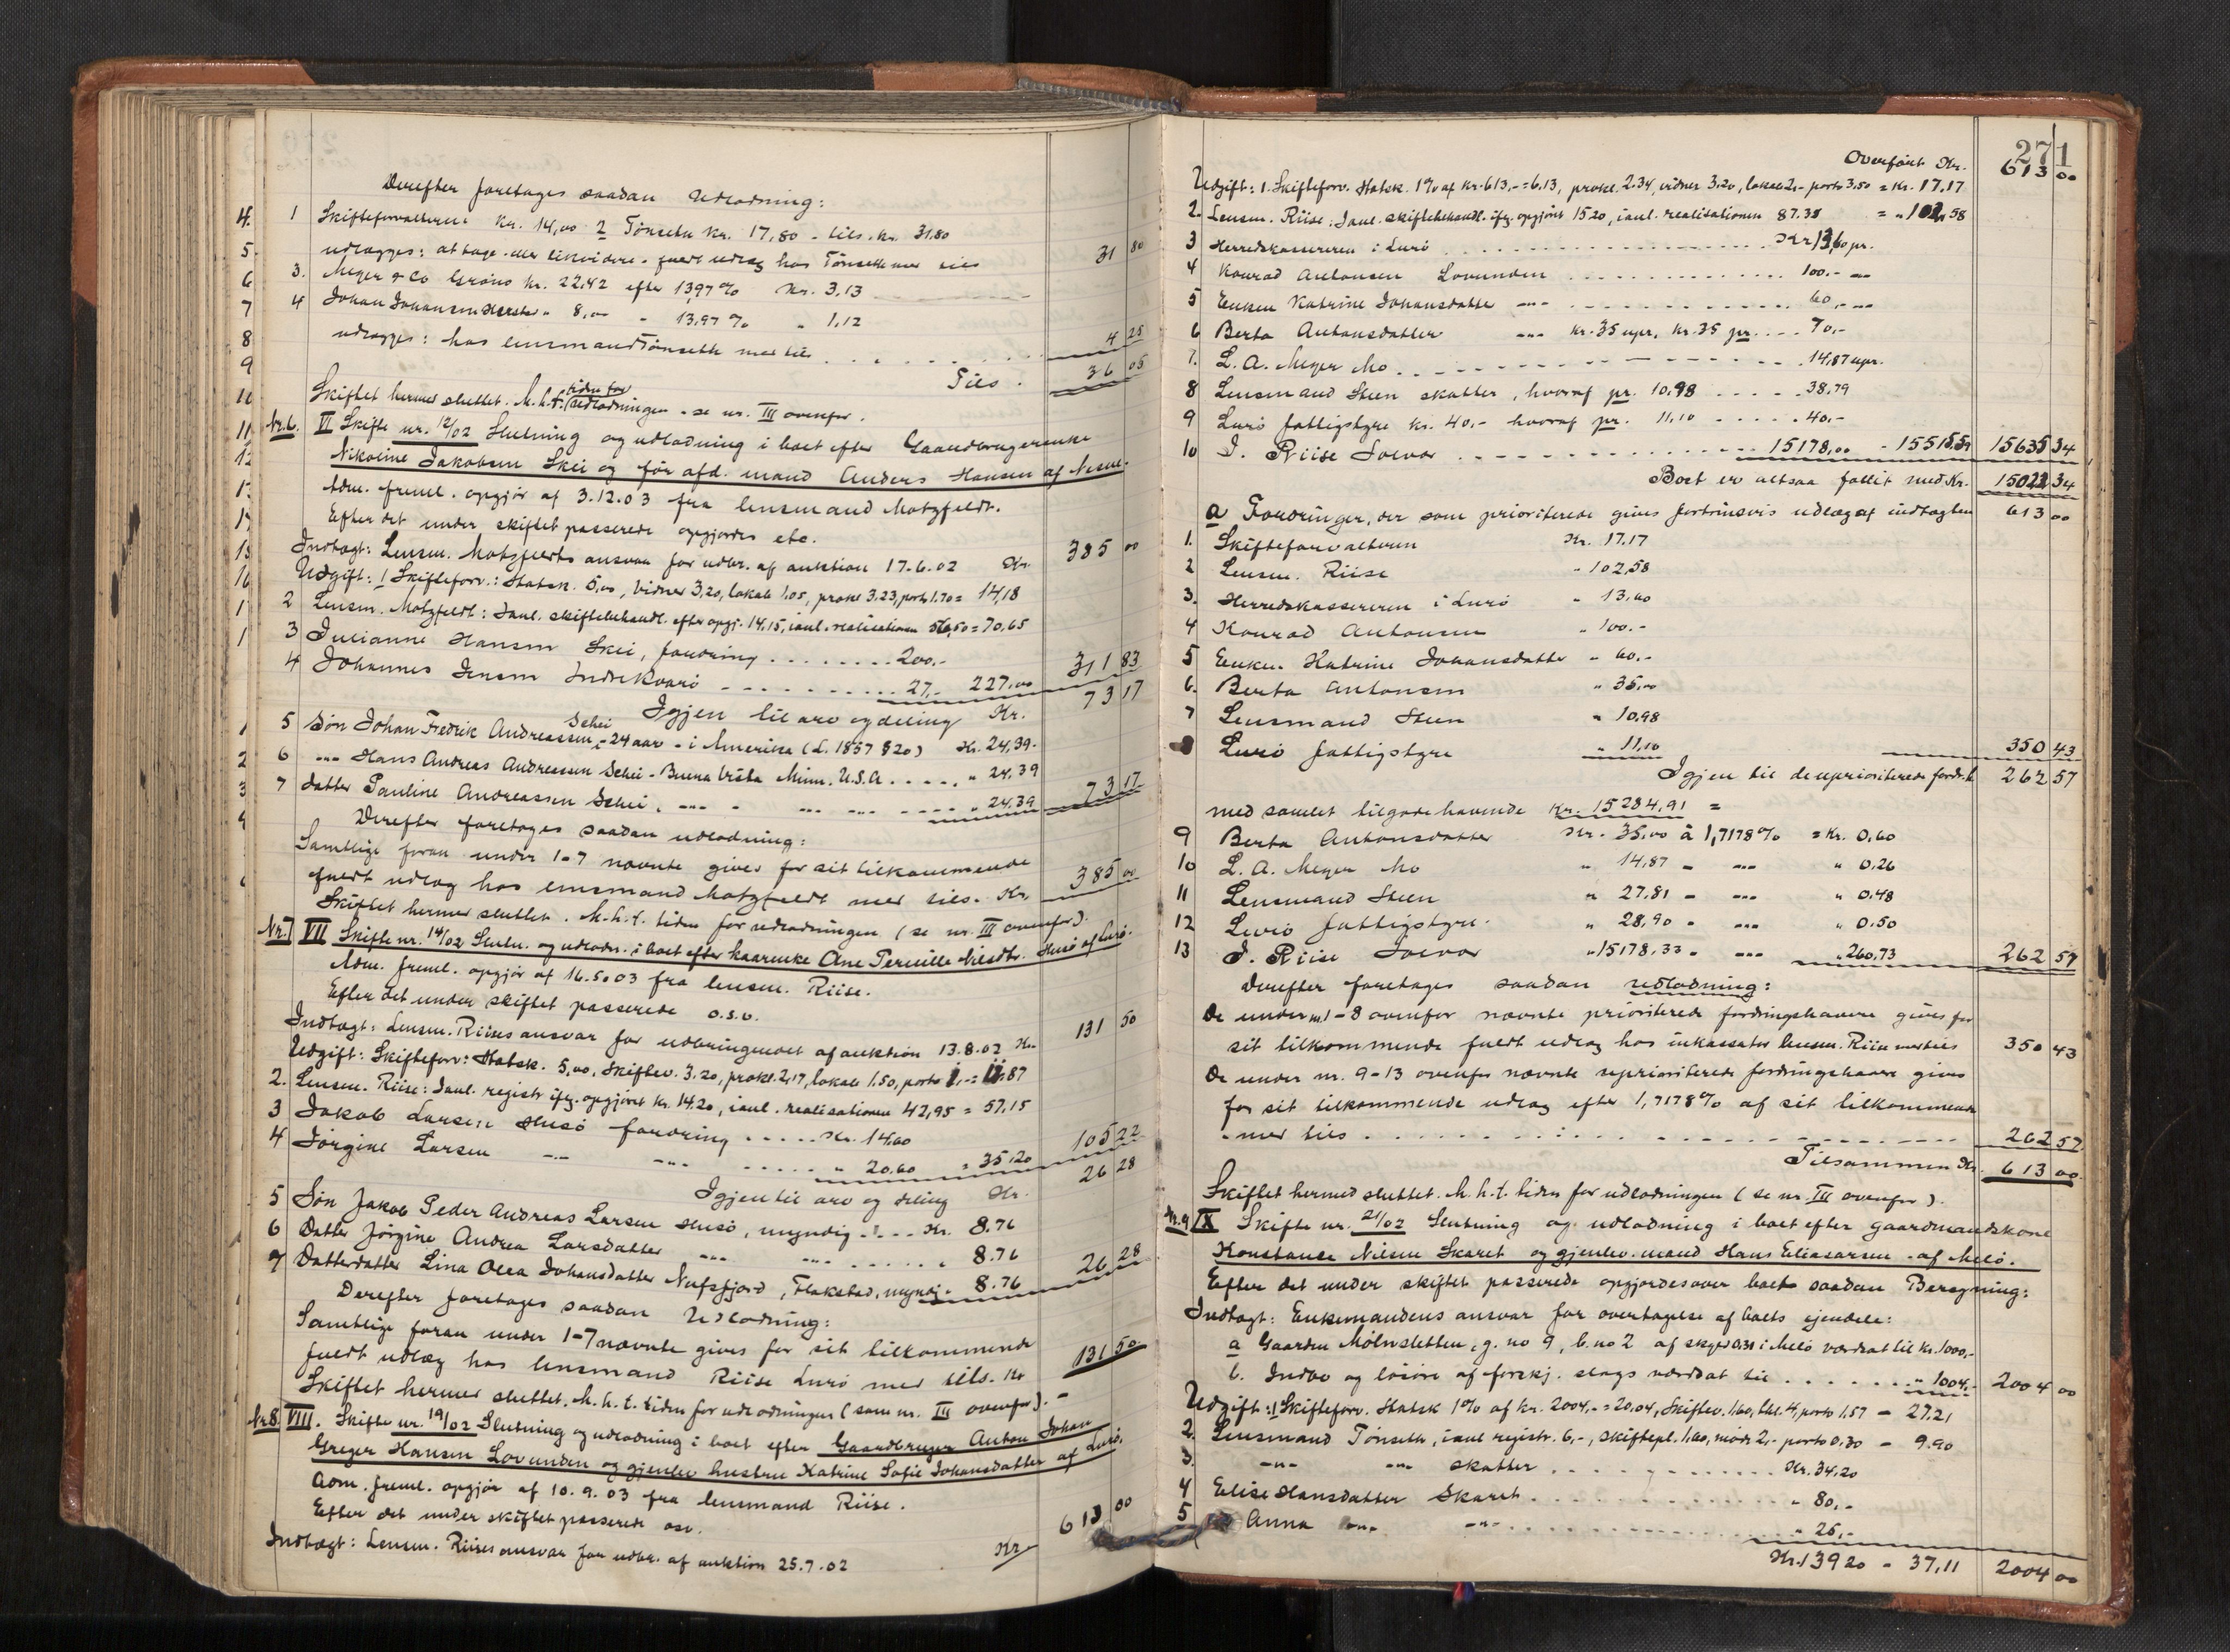 Derefter foretages saadan Udlodning:
1 Skifteforvalteren kr. 14,00 2 Tønseth kr. 17,80 - tils. kr. 31,80
udlægges: at tage eller likvidere - fuldt udlæg hos Tønseth med tils 31 80
3. Meyer & Co kr. 22,42 efter 13,97% kr. 3,13
4 Johan Johansen " 8,00 - 13,97% " 1,12
udlægges: hos lensmand Tønseth med tils . . . . . . 4 25
Tils . 36 05
Skiftet hermed sluttet. M.h.t. tiden for udlodningen - se nr. III ovenfor.
Nr. 6. VI Skifte nr. 12/02 Slutning og udlodning i boet efter Gaardbrugerenke
Nikoline Jakobsen Skei og før afd. mand Anders Hansen af Nesne.
Adm. freml. opgjør af 3.12.03 fra lensmand Motzfeldt.
Efter det under skiftet passerede opgjordes etc.
Indtægt: Lensm. Motzfeldts ansvar for udbr. af auktion 17.6.02 Kr. 385 00
Udgift: 1 Skifteforv.: Statsk. 5,00, vidner 3,20, lokale 1,05, prokl 3.23, porto 1.70 = 14,18
2 Lensm. Motzfeldt: Janl. skiftebehandl. efter opgj. 14,15, ianl. realisationen 56,50 = 70,65
3 Julianne Hansen Skei, fordring . . . . . . . . 200.-
4 Johannes Jensen Indre Kvarø - - - - - - - - 27,- 227,00 311 83
Igjen til arv og deling Kr. 73 17
5 Søn Johan Fredrik Andreassen Schei, - 24 aar - i Amerika (L. 1857 § 20) Kr. 24,39.
6 --- Hans Andreas Andreassen Schei - Buena Vista Minn. U.S.A . . . . . " 24,39
7 Datter Pauline Andreassen Schei, --- - --- --- - - - " 24,39 73 17
Derefter foretages saadan udlodning:
Samtlige foran under 1-7 nævnte gives for sit tilkommende
fuldt udlæg hos lensmand Motzfeldt med tils. Kr. 385 00
Skiftet hermed sluttet. M.h.t. tiden for udlodningen (se nr. III ovenfor).
Nr. 7 VII Skifte nr. 14/02 Slutn. og udlodn. i boet efter kaarenke Ane Pernille Nilsdtr. Husø af Lurø.
Adm. freml. opgjør af 16.5.03 fra lensm. Riise.
Efter det under skiftet passerede o.s.v.
Indtægt: Lensm. Riises ansvar for udbringendet af auktion 13.8.02 Kr 131 50
Udgift: Skifteforv: Statsk. 5,00, Skiftev. 3.20, prokl. 2,17, lokale 1.50, porto 1,- = 12,87
2. Lensm. Riise: Janl. registr. ifg. opgjøret kr. 14.20, ianl. realisationen 42,95 = 57,15
3 Jakob Larsen Husø fordring . . . . . Kr. 14,60
4 Jørgine Larsen --- --- . . . . . " 20,60 = 35,20 105 22
Igjen til arv og deling Kr. 26 28
5 Søn Jakob Peder Andreas Larsen Husø, myndig . . . . Kr. 8.76
6 Datter Jørgine Andrea Larsdatter --- --- . . . . . . 8.76
7 Datterdatter Lina Olea Johansdatter Nufsfjord, Flakstad, myndig - 8.76 26 28
Derefter foretages saadan Udlodning:
Samtlige foran under 1-7 nævnte gives for sit tilkommende
fuldt udlæg hos lensmand Riise Lurø med tils. Kr 131 50
Skiftet hermed sluttet. M.h.t. tiden for udlodningen (som nr. III ovenfor). -
Nr. 8 VIII. Skifte nr. 19/02 Slutning og udlodning i boet efter Gaardbruger Anton Johan
Greger Hansen Lovunden og gjenlev hustru Katrine Sofie Johansdatter af Lurø.
Adm. freml. opgjør af 10.9.03 fra lensmand Riise.
Efter det under skiftet passerede osv.
Indtægt: Lensm. Riises ansvar for udbr. af auktion 25.7.02 Kr. 613 00
271
Overført Kr. 613 00
Udgift: 1. Skifteforv. Statsk. 1% af kr. 613,- = 6.13, prokl. 2.34, vidner 3.20, lokale 2.- porto 3,50 = Kr. 17,17
2. Lensm. Riise: Janl. skiftebehandl. ifg. opgjøret 15.20, ianl. realisationen 87.38 = " 102,58
3 Herredskassereren i Lurø . . . . . . . . . . . Kr 13,60 pr.
4 Konrad Antonsen Lovunden . . . . . . . . . . . 100.- --
5 Enken Katrine Johansdatter --- . . . . . . . . . . . 60,- --
6 Berta Antonsdatter --- kr. 35 upr, kr. 35 pr. . . . 70,-
7. L. A. Meyer Mo . . . . . . . . . . . 14,87 upr.
8 Lensmand Steen skatter, hvoraf pr. 10,98 . . . . . 38,79
9 Lurø fattigstyre kr. 40,- hvoraf pr. 11,10 . . . . . 40,-
10 J. Riise Solvær . . . . . . . . . . . 15178,00 - 15515,59 15635 34
Boet er altsaa fallit med Kr. 15022 34
a Fordringer, der som prioriterede gives fortrinsvis udlæg af indtægten 613 00
1. Skifteforvalteren Kr. 17.17
2 Lensm. Riise " 102,58
3. Herredskassereren i Lurø " 13,60
4 Konrad Antonsen " 100.-
5 Enken Katrine Johansdatter " 60.-
6. Berta Antonsen " 35,00
7 Lensmand Steen " 10,98
8 Lurø fattigstyre " 11,10 350 43
Igjen til de uprioriterede fordr. 262 57
med samlet tilgodehavende Kr. 15284,91 =
9 Berta Antonsdatter Kr. 35,00 à 1,7178% = Kr. 0,60
10 L. A. Meyer Mo " 14,87 - --- " 0,26
11 Lensmand Steen " 27,81 - --- " 0,48
12 Lurø fattigstyre. " 28,90 - --- " 0.50
13 J. Riise Solvær " 15178,33 - --- " 260,73 262 57
Derefter foretages saadan udlodning:
De under nr. 1-8 ovenfor nævnte prioriterede fordringshavere gives for
sit tilkommende fuldt udlæg hos inkassator lensm. Riise med tils 350 43
De under nr. 9-13 ovenfor nævnte uprioriterede fordringshavere gives
for sit tilkommende udlæg efter 1,7178% af sit tilkommende
- med tils . . . . . . . . . . . 262 57
Tilsammen Kr. 613 00
Skiftet hermed sluttet. M.h.t. tiden for udlodningen (se nr. III ovenfor).
Nr. 9 IX Skifte nr. 21/02 Slutning og udlodning i boet efter gaardmandskone
Konstance Nilsen Skaret og gjenlev. mand Hans Eliasarsen - af Melø.
Efter det under skiftet passerede opgjordes over boet saadan Beregning:
Indtægt: Enkemandens ansvar for overtagelse af boets ejendele:
a Gaarden Mølnsletten, g. no 9, b. no 2 af skyld 0,31 i Melø værdsat til kr. 1000,-
b. Indbo og løsøre af forskj. slags værdsat til . . . . . . " 1004,- 2004 00
Udgift: 1 Skifteforv. Statsk 1% af kr. 2004,- = 20,04, Skiftev. 1,60, 4, porto 1,57 - 27,21
2. Lensmand Tønseth, ianl registr. 6,-, skiftepl. 1,60, møde 2,- porto 0,30 - 9.90
3. --- --- skatter . . . . . . . . . . . Kr. 34,20
4 Elise Hansdatter Skaret . . . . . . . . . . . " 80,-
5 Anna --- --- . . . . . . . . . . . " 25,-
Kr. 139 20 - 37,11 2004 00